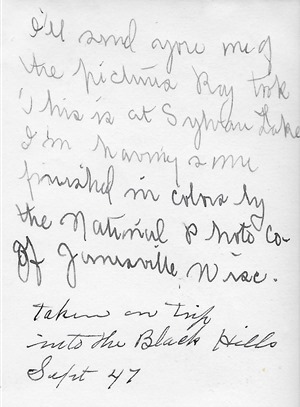 I'll send you one of
the pictures Ray took
This is at Sylvan Lake
I'm having some
finished in colors by
the National Photo Co-
Of Janesville, Wisc.
taken on trip
into the Black Hills
Sept 47